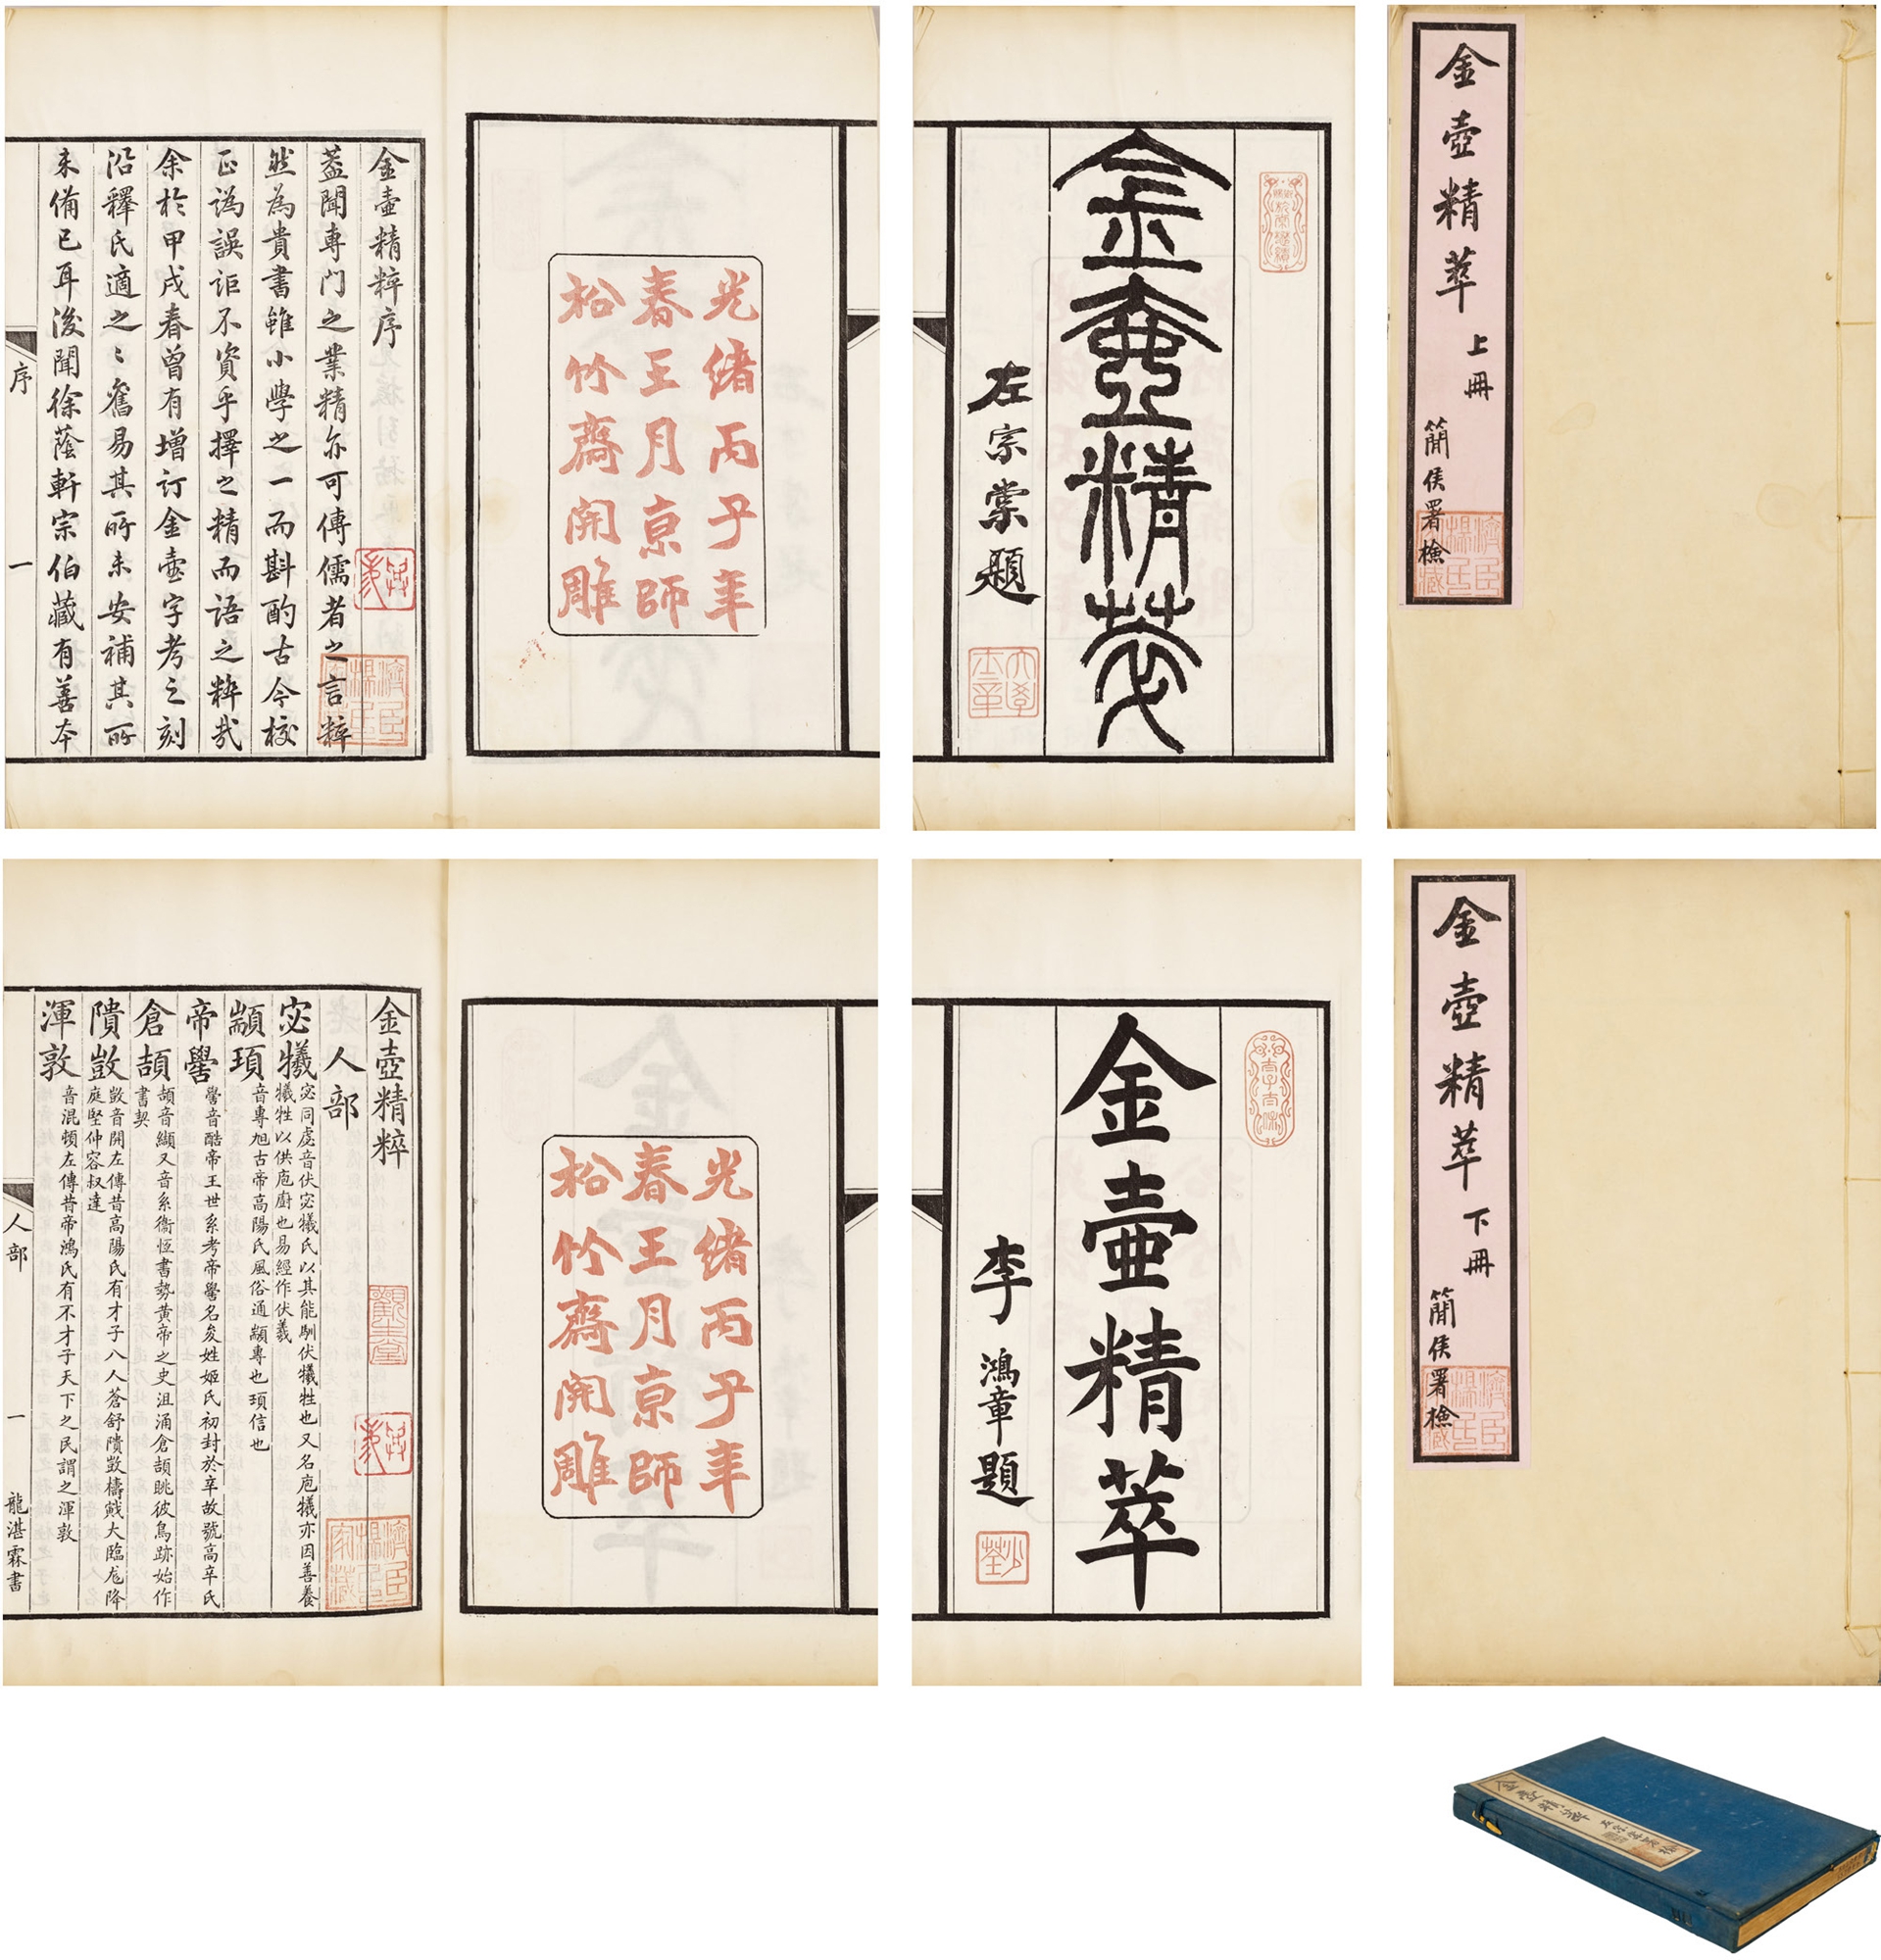 金壺精萃
上冊
簡侯署檢
金壺精萃
左宗棠題
光緒丙子年
春王月京師
松竹齋開雕
金壺精粹序
蓋聞專門之業精亦可傳儒者之言粹
然為貴書雖小學之一而斟酌古今校
正譌誤詎不資乎擇之精而語之粹哉
余於甲戌春曾有增訂金壺字考之刻
沿釋氏適之之舊易其所未安補其所
未備已耳後聞徐蔭軒宗伯藏有善本
序
一
金壺精萃
下冊
簡侯署檢
金壺精萃
李鴻章題
光緒丙子年
春王月京師
松竹齋開雕
金壺精粹
人部
宓犧宓同虙音伏宓犧氏以其能馴伏犧牲也又名庖犧亦因善養
犧牲以供庖廚也易經作伏羲
顓頊音專旭古帝高陽氏風俗通顓專也頊信也
帝嚳嚳音酷帝王世系考帝嚳名夋姓姬氏初封於辛故號高辛氏
倉頡頡音纈又音系衞恆書勢黃帝之史沮涌倉頡眺彼鳥跡始作
書契
隤敳敳音開左傳昔高陽氏有才子八人蒼舒隤敳檮戭大臨尨降
庭堅仲容叔達
渾敦音混頓左傳昔帝鴻氏有不才子天下之民謂之渾敦
人部
一
龍湛霖書
濟臣楊氏家藏
金壺精萃